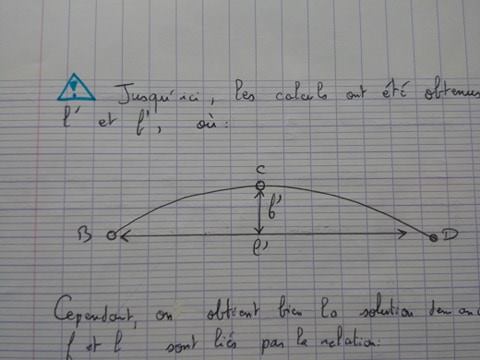 Jusqu'ici, les calculs ont été obtenus
l' et f', où:
C
f'
B
D
l'
Cependant, on obtient bien la solution deman
f et l sont liés par la relation: